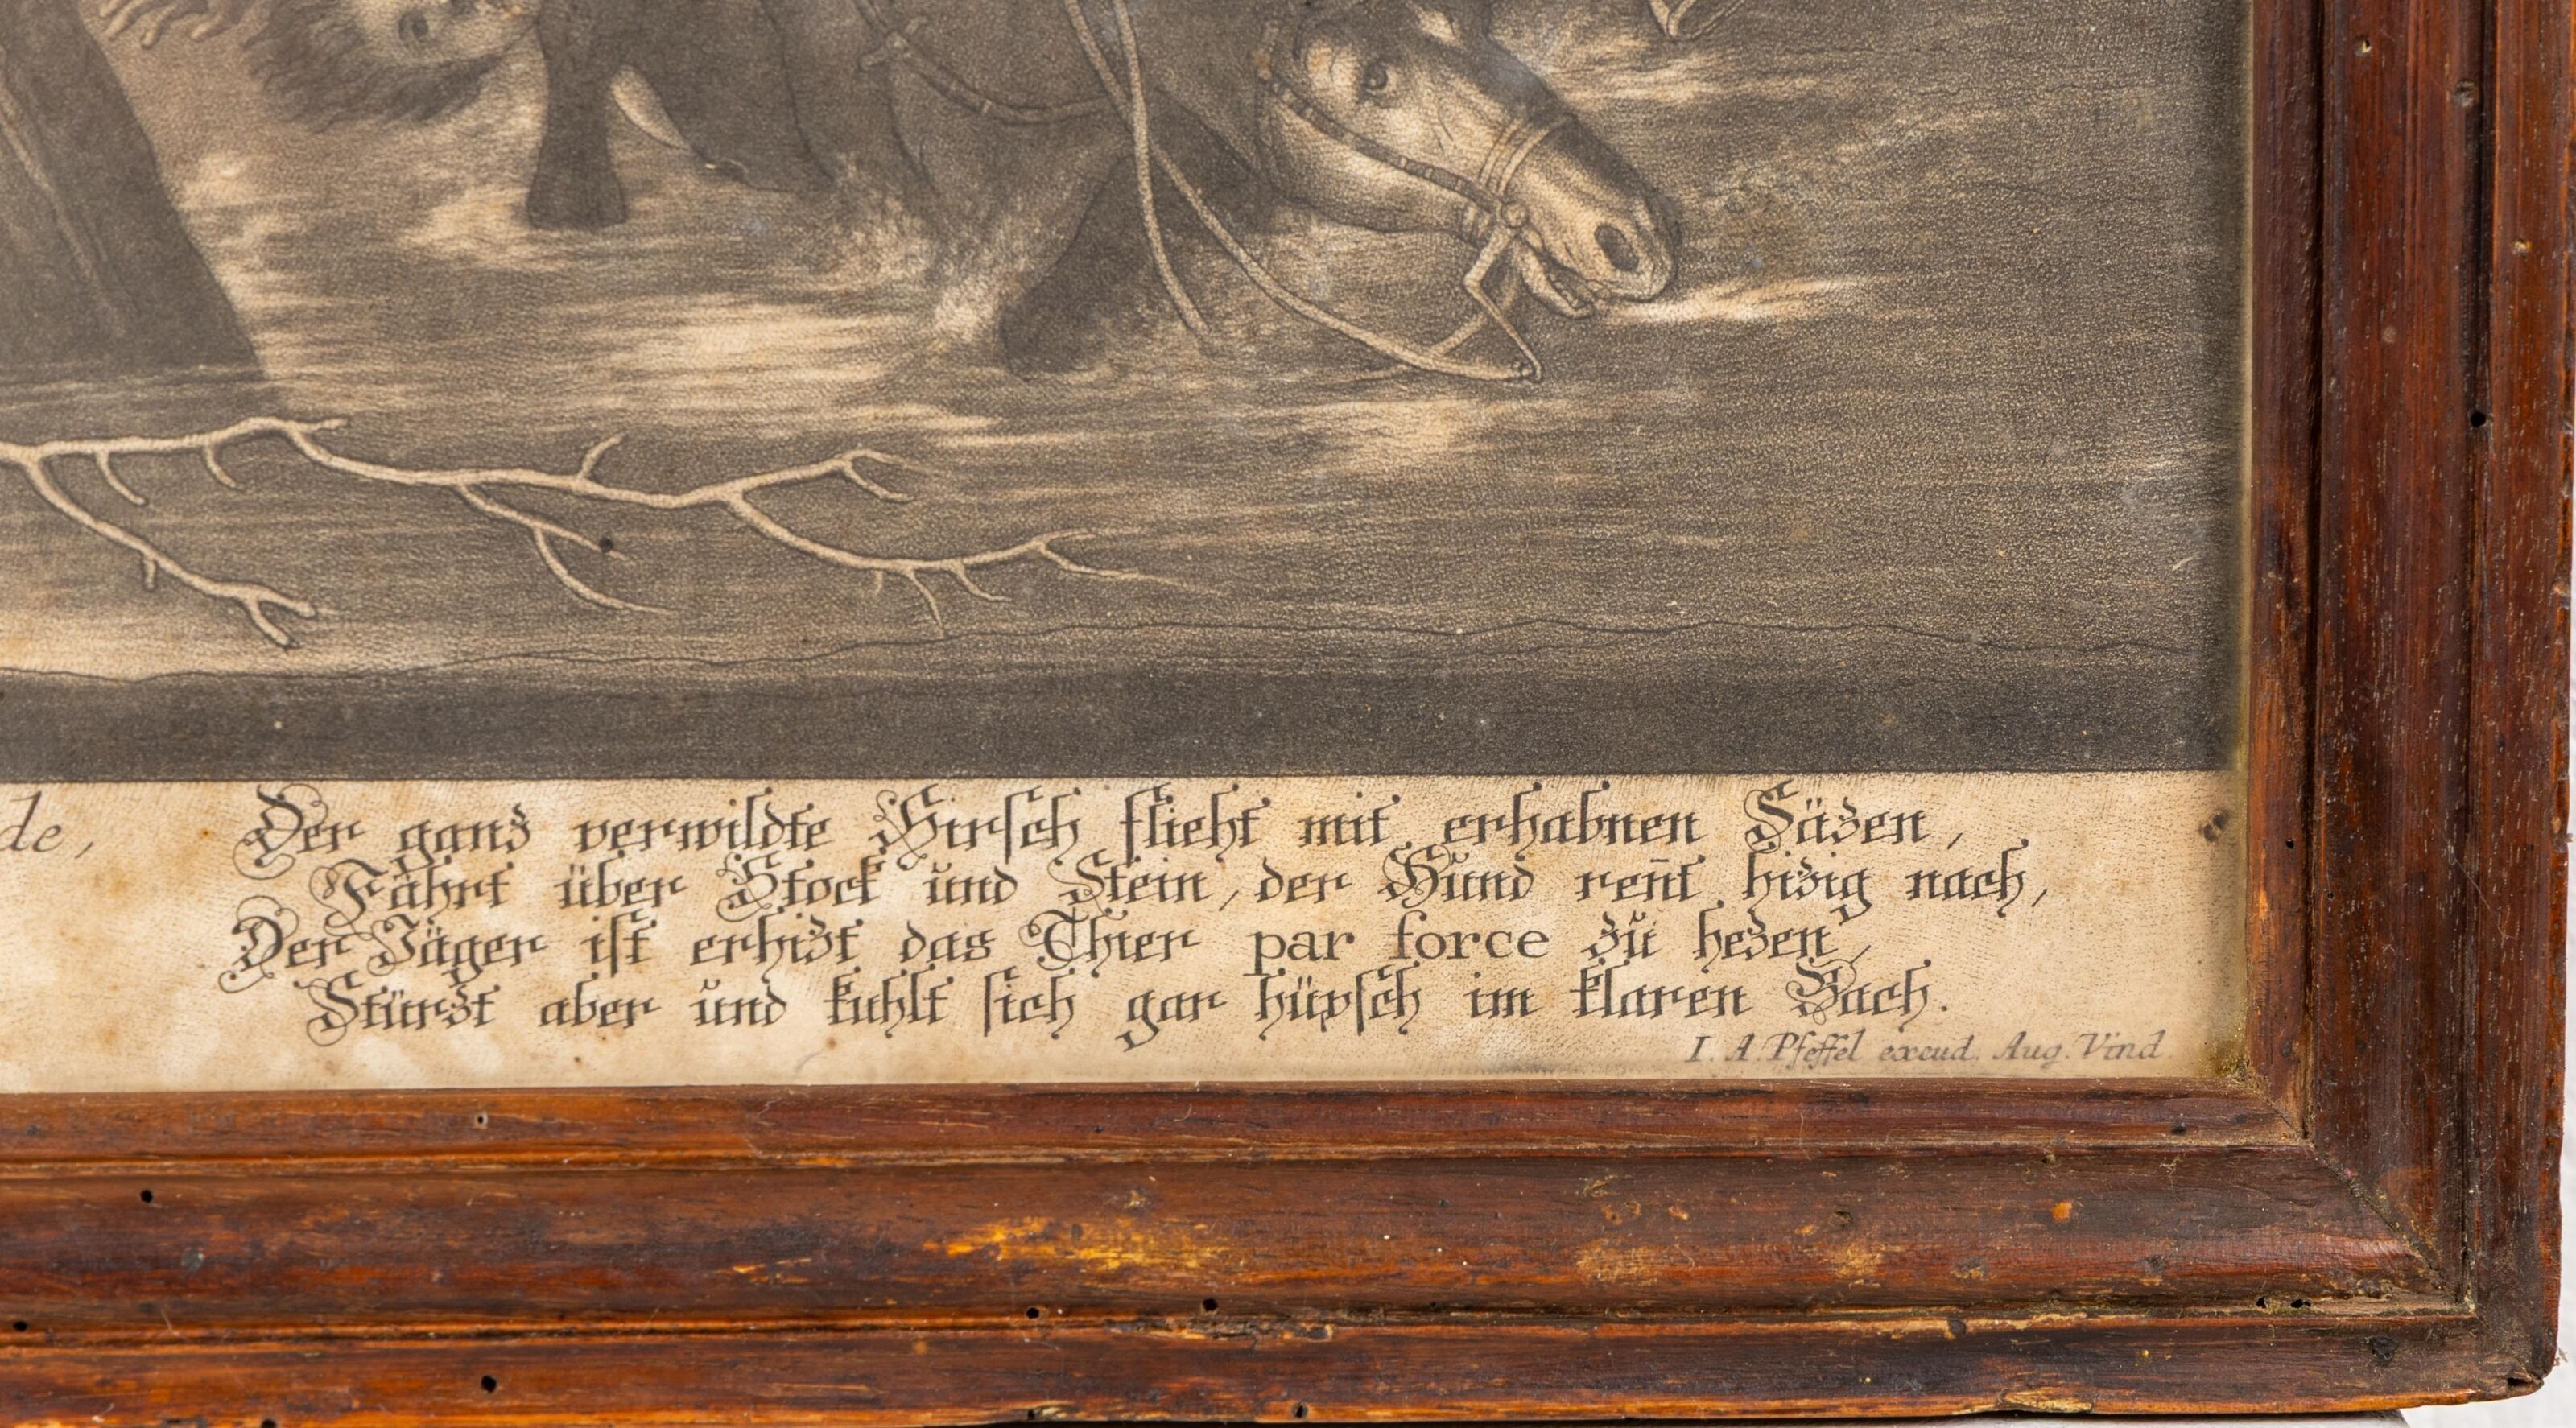 de,
Der ganz verwildte Hirsch flieht mit erhabnen Säzen,
Fährt über Stock ŭnd Stein, der Hŭnd rent̄ hizig nach,
Der Jäger ist erhizt das Thier par force zŭ hezen,
Stürzt aber ŭnd kuhlt sich gar hüpsch im klaren Bach.
I. A. Pfeffel excud. Aug. Vind.